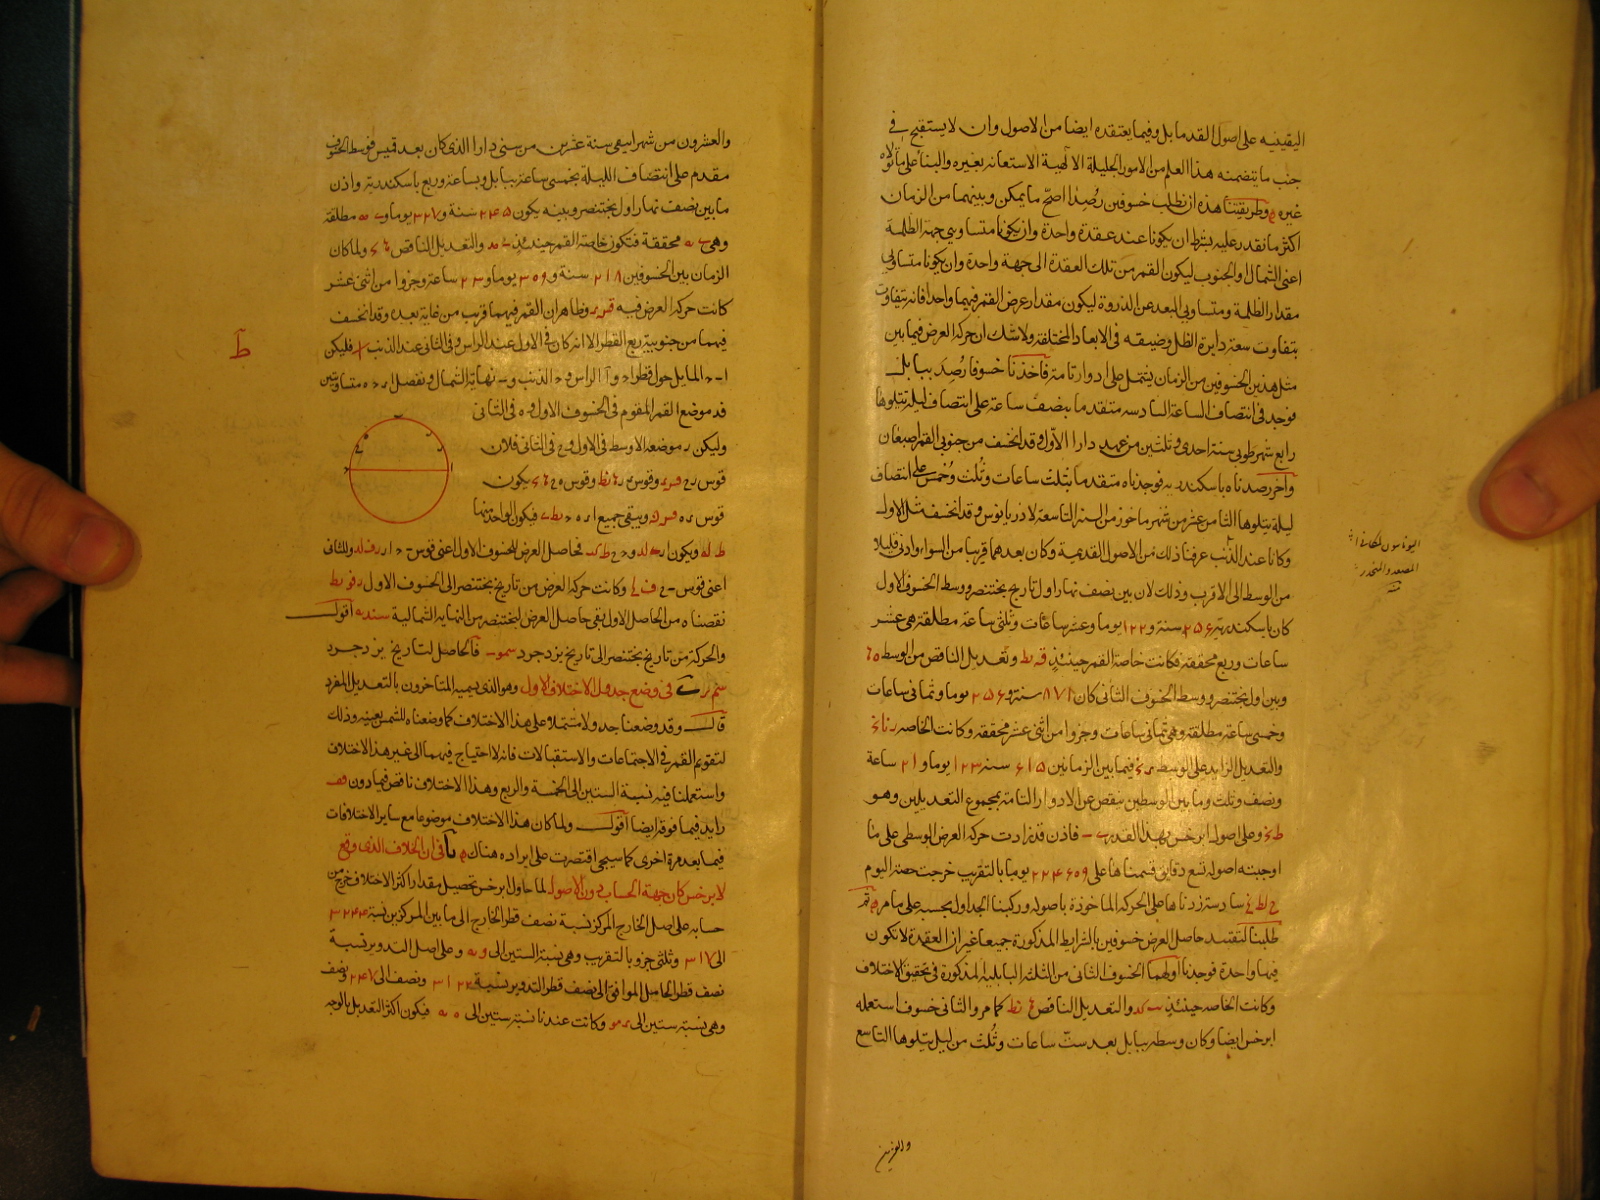 اليقينيه على اصول القدما بل وفيما يعتقده ايضا من الاصول وان لا يستقبح في
جنب ما يتضمنه هذا العلم من الامور الجليلة الالهية الاستعانه بغيره والبنا على ما تولاه
غيره وطريقتنا هذه ان نطلب خسوفين رُصدا اصح ما يمكن وبينهما من الزمان
اكثر ما نقدر عليه بشرط ان يكونا عند عقدة واحدة وان يكونا متساويي جهة الظلمة
اعنى الشمال او الجنوب ليكون القمر من تلك العقدة الى جهة واحدة وان يكونا متساويي
مقدار الظلمة ومتساويي البعد عن الذروة ليكون مقدار عرض القمر فيهما واحدا فانه يتفاوت
بتفاوت سعة دايرة الظل وضيقه فى الابعاد المختلفة ولا شك ان حركة العرض فيما بين
مثل هذين الخسوفين من الزمان يشتمل على ادوار تامة فاخذنا خسوفا رُصد ببابل
فوجد فى انتصاف الساعة السادسه متقدما بنصف ساعة على انتصاف ليلة تتلوها
رابع شهر طوبى سنة احدى وثلثين من عهد دارا الاول وقد انخسف من جنوبى القمر اصبعان
وآخر رصدناه باسكندريه فوجدناه متقدما بثلث ساعات وثُلث وخُمس على انتصاف
ليلة يتلوها الثامن عشر من شهر ماخوز من السنه التاسعة لاذريانوس وقد انخسف مثل الاول
وكانا عند الذنب عرفنا ذلك من الاصول القديمة وكان بعدهما قريبا من السواء وادنى قليلا
من الوسط الى الاقرب وذلك لان بين نصف نهار اول تاريخ بختنصر ووسط الخسوف الاول
كان باسكندريه ٢٥۶ سنة و١٢٢ يوما وعشر ساعات وثلثى ساعة مطلقة هى عشر
ساعات وربع محققة فكانت خاصة القمر حينئذ ق يط وتعديل الناقص من الوسط ه
وبين اول بختنصر ووسط الخسوف الثانى كان ٨٧١ سنة و٢٥۶ يوما وثمانى ساعات
وخمسى ساعة مطلقة وهى ثمانى ساعات وجزوا من اثنى عشر محققة وكانت الخاصه رنا
والتعديل الزايد على الوسط فيما بين الزمانين ۶١٥ سنه ١٣٣ يوما و٢١ ساعة
ونصف وثلث وما بين الوسطين ينقص عن الادوار التامة بمجموع التعديلين وهو
وعلى اصول ابرخس بهذا القدر فاذن قد زادت حركة العرض الوسطى على ما
اوجبته اصوله تسع دقايق قسمناها على ٢٢٤۶٠٩ يوما بالتقريب خرجت حصة اليوم
سادسة زدناها على الحركة الماخوذة باصوله وركبنا الجداول بحسبه على ما مر ثم
طلبنا لتقييد حاصل العرض خسوفين بالشرايط المذكورة جميعا غير ان العقدة لا تكون
فيهما واحدة فوجدنا اولهما الخسوف الثانى من الثلثة البابلية المذكورة فى تحقيق الاختلاف
وكانت الخاصه حينئذ يب كد والتعديل الناقص نط كما مر والثانى خسوف استعمله
ابرخس ايضا وكان وسطه ببابل بعد ست ساعات وثُلث من ليل يتلوها التاسع
والعشرين
والعشرون من شهر ابيفى سنة عشرين من سنى دارا الذى كان بعد قمبس فوسط الخسوف
مقدم على انتصاف الليلة بخمسى ساعة ببابل وبساعة وربع باسكندرية واذن
ما بين نصف نهار اول بختنصر وبينه يكون ٢٤٥ سنة و٣٢٧ يوما مطلقة
وهى محققة فتكون خاصة القمر حينئذ والتعديل الناقص ولما كان
الزمان بين الخسوفين ٢١٨ سنة و٣٠٩ يوما و٢٣ ساعة وجزوا من اثنى عشر
كانت حركة العرض فيه وظاهر ان القمر فيهما قريب من غاية بعده وقد انخسف
فيهما من جنوبيه ربع القطر الا انه كان فى الاول عند الراس وفى الثانى عند الذنب فليكن
ا ب ج المايل حول قطر ا ج وآ الراس و ج الذنب و ب نهاية الشمال ونفصل متساويتين
قد موضع القمر المقوم فى الخسوف الاول وه فى الثانى
وليكن موضعه الاوسط فى الاول وح فى الثانى فلان
قوس وقوس وقوس يكون
قوس ويبقى جميع فيكون الواحد منهما
ويكون فحاصل العرض للخسوف الاول اعنى قوس وللثانى
اعنى قوس وكانت حركة العرض من تاريخ بختنصر الى الخسوف الاول رفو يط
نقصناه من الحاصل الاول بقى حاصل العرض لبختنصر من النهاية الشمالية شند يه اقول
والحركة من تاريخ بختنصر الى تاريخ يزدجرد فالحاصل لتاريخ يزدجرد
فى وضع جدول الاختلاف الاول وهو الذى يسميه المتاخرون بالتعديل المفرد
قال وقد وضعنا جدولا مشتملا على هذا الاختلاف كما وضعناه للشمس بعينه وذلك
لتقويم القمر فى الاجتماعات والاستقبالات فانه لا احتياج فيهما الى غير هذا الاختلاف
واستعملنا فيه نسبة الستين الى الخمسة والربع وهذا الاختلاف ناقص فيما دون قف
زايد فيما فوقه ايضا اقول ولما كان هذا الاختلاف موضوعا مع ساير الاختلافات
فيما بعد مرة اخرى كما سيجى اقتصرت على ايراده هناك فى ان الخلاف الذى وقع
لابرخس كان جهة الحساب دون الاصول لما حاول ابرخس تحصيل مقدار اكثر الاختلاف خرج من
حسابه على اصل الخارج المركز نسبة نصف قطر الخارج الى ما بين المركزين نسبة ٣١٤٤
الى ٣١٧ وثلثى جزو بالتقريب وهى نسبة الستين الى و يه وعلى اصل التدوير نسبة
نصف قطر الحامل الموافق الى نصف قطر التدوير نسبة ٣١٢٢ ونصف الى ٢٤٧ ونصف
وهى نسبة ستين الى د مو وكانت عندنا نسبة ستين الى ه يه فيكون اكثر التعديل بالوجه